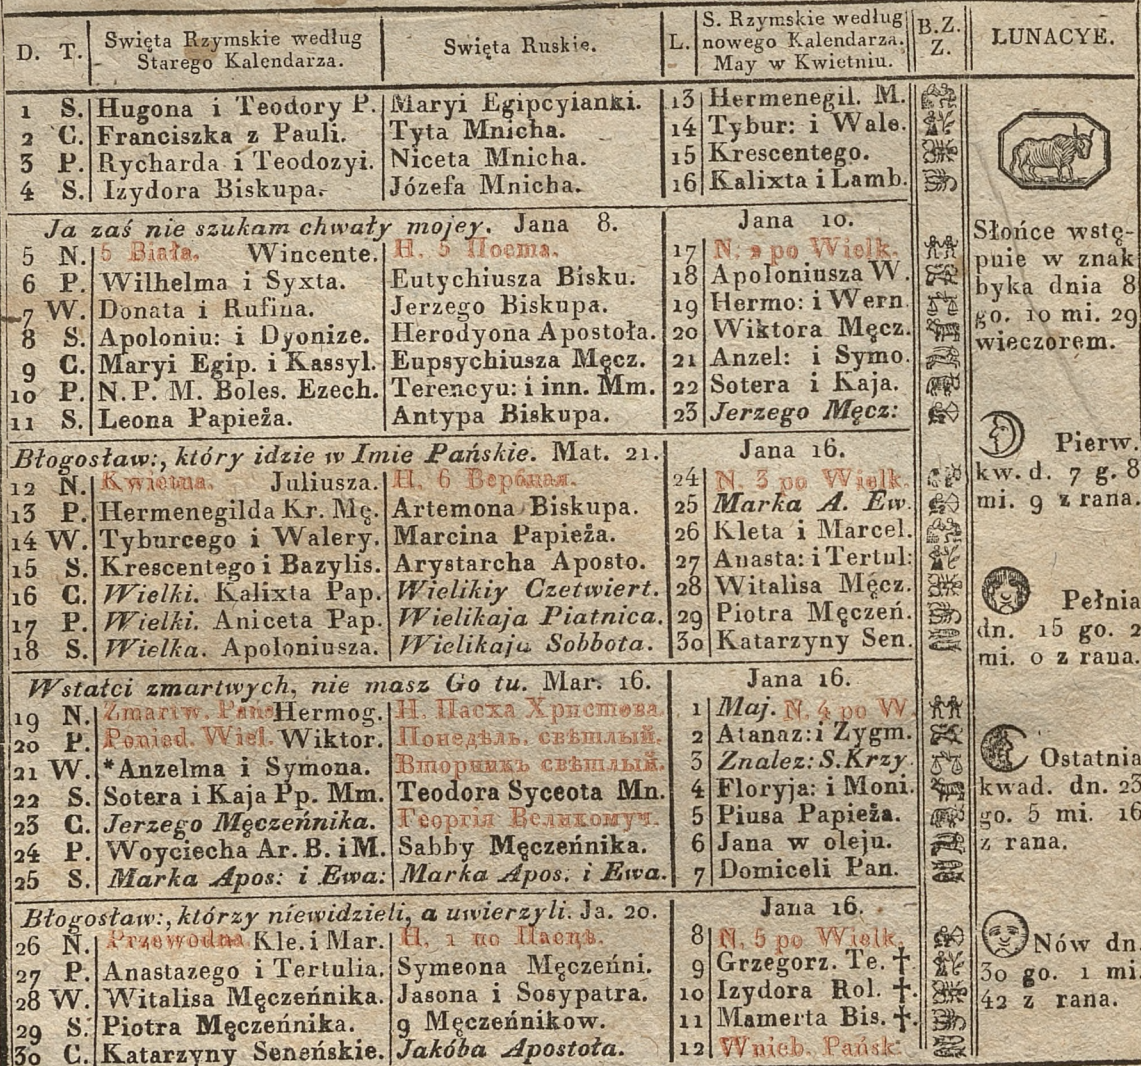 D. T. Swięta Rzymskie według Starego Kalendarza. Swięta Ruskie. L. S. Rzymskie według nowego Kalendarza. May w Kwietniu. B.Z. Z. LUNACYE.
1 S. Hugona i Teodory P. Maryi Egipcyianki. 13 Hermenegil. M.
2 C. Franciszka z Pauli. Tyta Mnicha. 14 Tybur: i Wale.
3 P. Rycharda i Teodozyi. Niceta Mnicha. 15 Krescentego.
4 S. Izydora Biskupa. Józefa Mnicha. 16 Kalixta i Lamb.
Ja zaś nie szukam chwały mojey. Jana 8. Jana 10.
5 N. 5 Biała. Wincente. Н. 5 Поста. 17 N. 2 po Wielk.
6 P. Wilhelma i Syxta. Eutychiusza Bisku. 18 Apoloniusza W.
7 W. Donata i Rufina. Jerzego Biskupa. 19 Hermo: i Wern.
8 S. Apoloniu: i Dyonize. Herodyona Apostoła. 20 Wiktora Męcz.
9 C. Maryi Egip. i Kassyl. Eupsychiusza Męcz. 21 Anzel: i Symo.
10 P. N. P. M. Boles. Ezech. Terencyu: i inn. Mm. 22 Sotera i Kaja.
11 S. Leona Papieża. Antypa Biskupa. 23 Jerzego Męcz:
Błogosław:, który idzie w Imie Pańskie. Mat. 21. Jana 16.
12 N. Kwietna. Juliusza. Н. 6 Вербная. 24 N. 3 po Wielk.
13 P. Hermenegilda Kr. Mę. Artemona Biskupa. 25 Marka A. Ew.
14 W. Tyburcego i Walery. Marcina Papieża. 26 Kleta i Marcel.
15 S. Krescentego i Bazylis. Arystarcha Aposto. 27 Anasta: i Tertul:
16 C. Wielki. Kalixta Pap. Wielikiy Czetwiert. 28 Witalisa Męcz.
17 P. Wielki. Aniceta Pap. Wielikaja Piatnica. 29 Piotra Męczeń.
18 S. Wielka. Apoloniusza. Wielikaja Sobbota. 30 Katarzyny Sen.
Wstałci zmartwych, nie masz Go tu. Mar. 16. Jana 16.
19 N. Zmartw. Pańs Hermog. Н. Пасха Христова. 1 Maj. N. 4 po W.
20 P. Ponied. Wiel. Wiktor. Понедѣль. свѣтлый. 2 Atanaz: i Zygm.
21 W. *Anzelma i Symona. Вторникъ свѣтлый. 3 Znalez: S. Krzy.
22 S. Sotera i Kaja Pp. Mm. Teodora Syceota Mn. 4 Floryja: i Moni.
23 C. Jerzego Męczeńnika. Георгія Великомуч. 5 Piusa Papieża.
24 P. Woyciecha Ar. B. i M. Sabby Męczeńnika. 6 Jana w oleju.
25 S. Marka Apos: i Ewa: Marka Apos. i Ewa. 7 Domiceli Pan.
Błogosław:, którzy niewidzieli, a uwierzyli. Ja. 20. Jana 16.
26 N. Przewodna Kle. i Mar. Н. 1 по Пасцѣ. 8 N. 5 po Wielk.
27 P. Anastazego i Tertulia. Symeona Męczeńni. 9 Grzegorz. Te. †.
28 W. Witalisa Męczeńnika. Jasona i Sosypatra. 10 Izydora Rol. †.
29 S. Piotra Męczeńnika. 9 Męczeńnikow. 11 Mamerta Bis. †.
30 C. Katarzyny Seneńskie. Jakóba Apostoła. 12 Wnieb. Pańsk.
Słońce wstę-
puie w znak
byka dnia 8
go. 10 mi. 29
wieczorem.
Pierw.
kw. d. 7 g. 8
mi. 9 z rana.
Pełnia
dn. 15 go. 2
mi. 0 z rana.
Ostatnia
kwad. dn. 23
go. 5 mi. 16
z rana.
Nów dn.
30 go. 1 mi.
42 z rana.